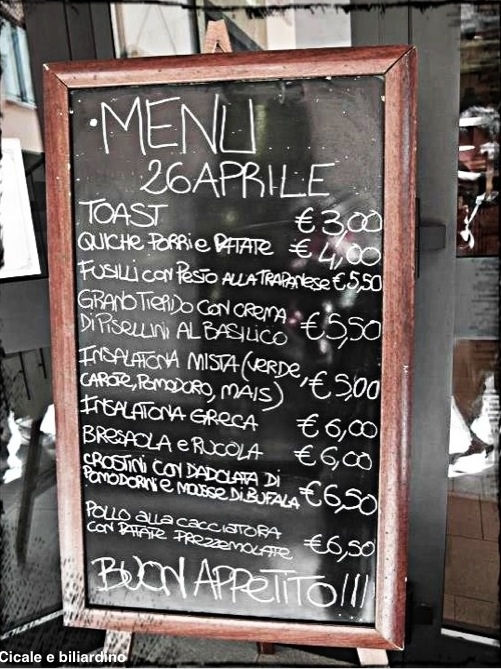 • MENU
26 APRILE
TOAST € 3,00
QUICHE PORRI e PATATE € 4,00
FUSILLI CON PESTO ALLA TRAPANESE € 5,50
GRANO TIEPIDO CON CREMA
DI PISELLINI AL BASILICO € 5,50
INSALATONA MISTA (VERDE,
CAROTE, POMODORO, MAIS) € 5,00
INSALATONA GRECA € 6,00
BRESAOLA e RUCOLA € 6,00
CROSTINI CON DADOLATA DI
POMODORINI e MOUSSE DI BUFALA € 6,50
POLLO ALLA CACCIATORA
CON PATATE PREZZEMOLATE € 6,50
BUON APPETITO!!!
Cicale e biliardino